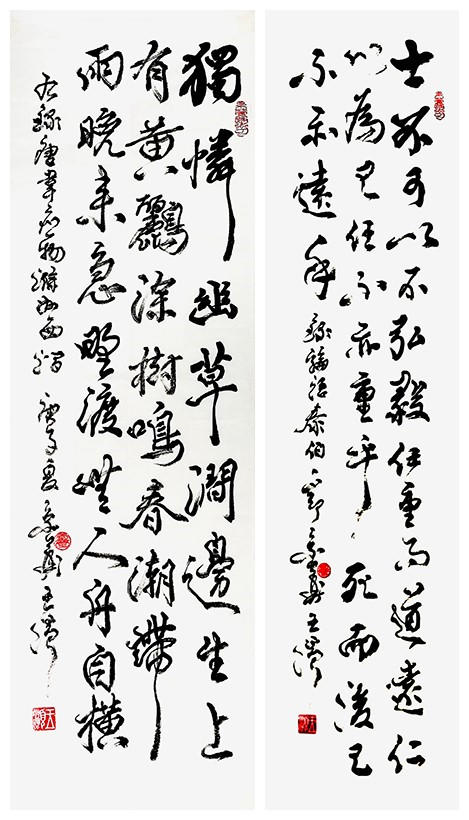 士不可以不弘毅任重而道遠仁
以為己任不亦重乎死而後已
不亦遠乎 錄論語泰伯
獨憐幽草澗邊生上
有黃鸝深樹鳴春潮帶
雨晚來急野渡無人舟自橫
右錄唐韋應物滁州西澗